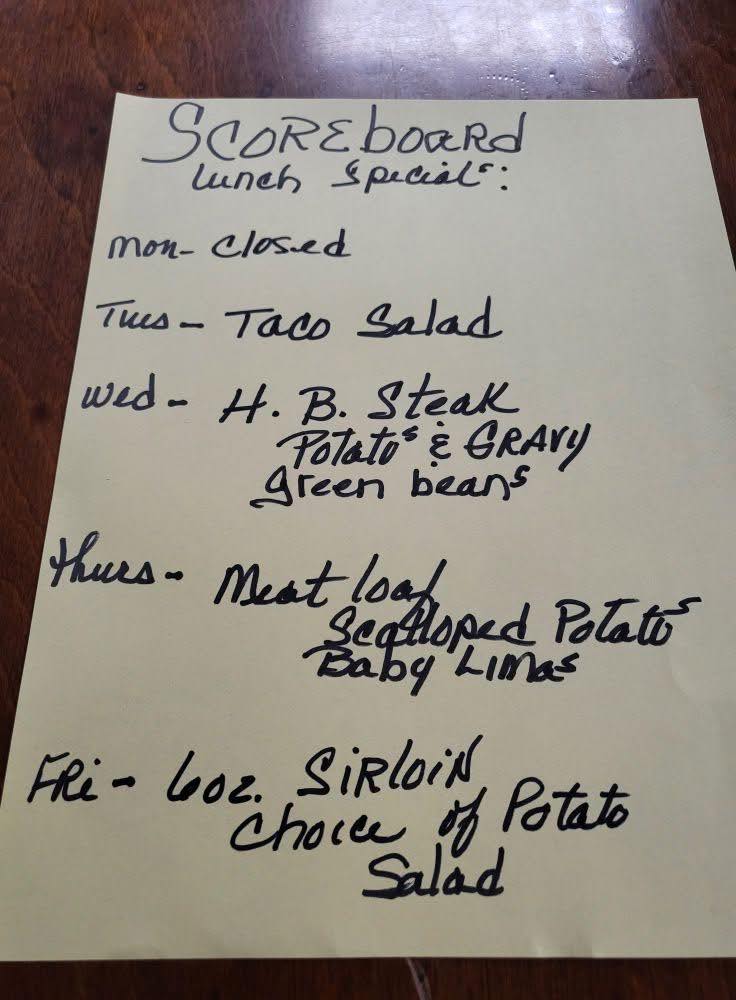 SCOREboARD
Lunch Specials:
Mon- Closed
Tues - Taco Salad
Wed - H. B. Steak
Potatos & GRAVY
green beans
Thurs - Meat loaf
Scalloped Potatos
Baby Limas
FRi - 6oz. SiRloiN
Choice of Potato
Salad